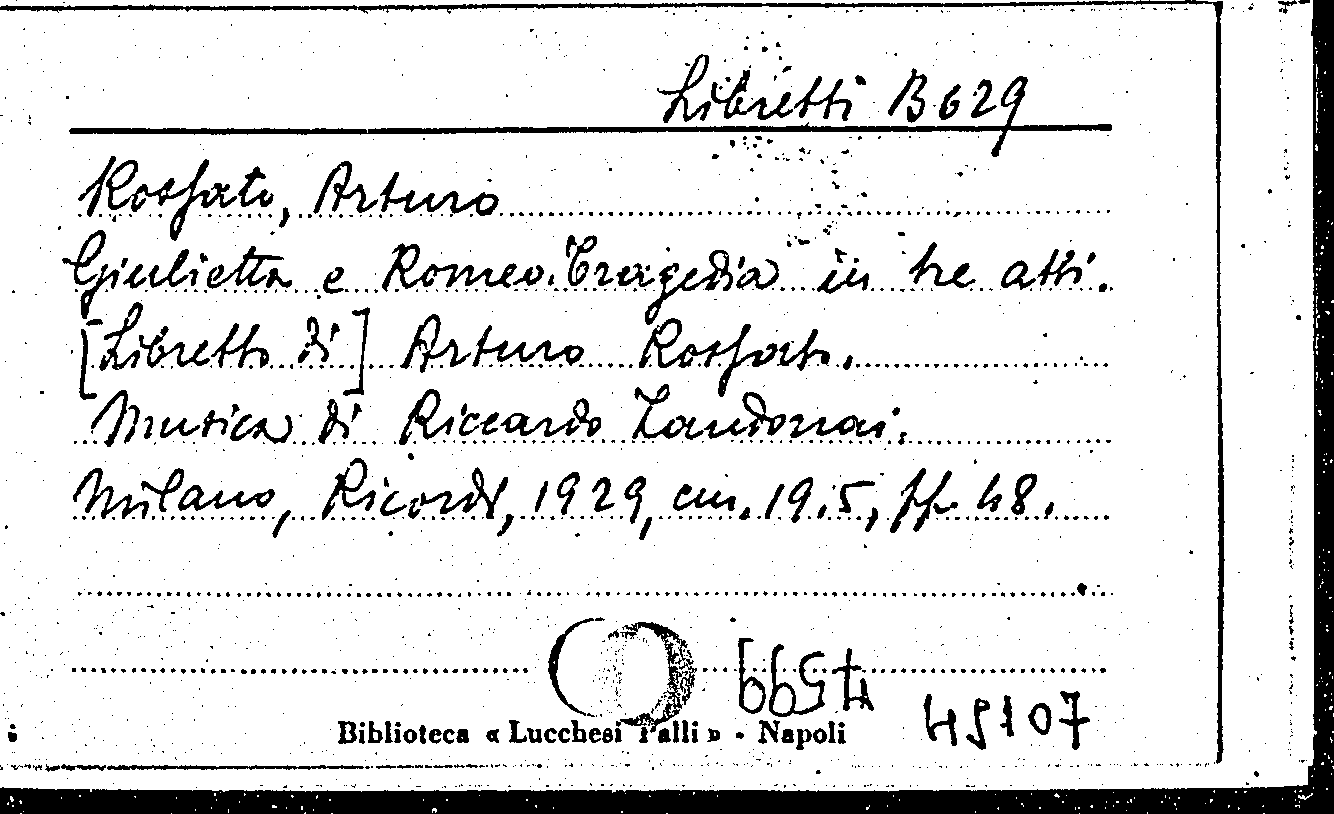 Libretti B 629
Rossato, Arturo
Giulietta e Romeo. Tragedia in tre atti.
[Libretto di] Arturo Rossato.
Musica di Riccardo Zandonai.
Milano, Ricordi, 1929, cm. 19.5, pp. 48.
45107
Biblioteca « Lucchesi Palli » - Napoli